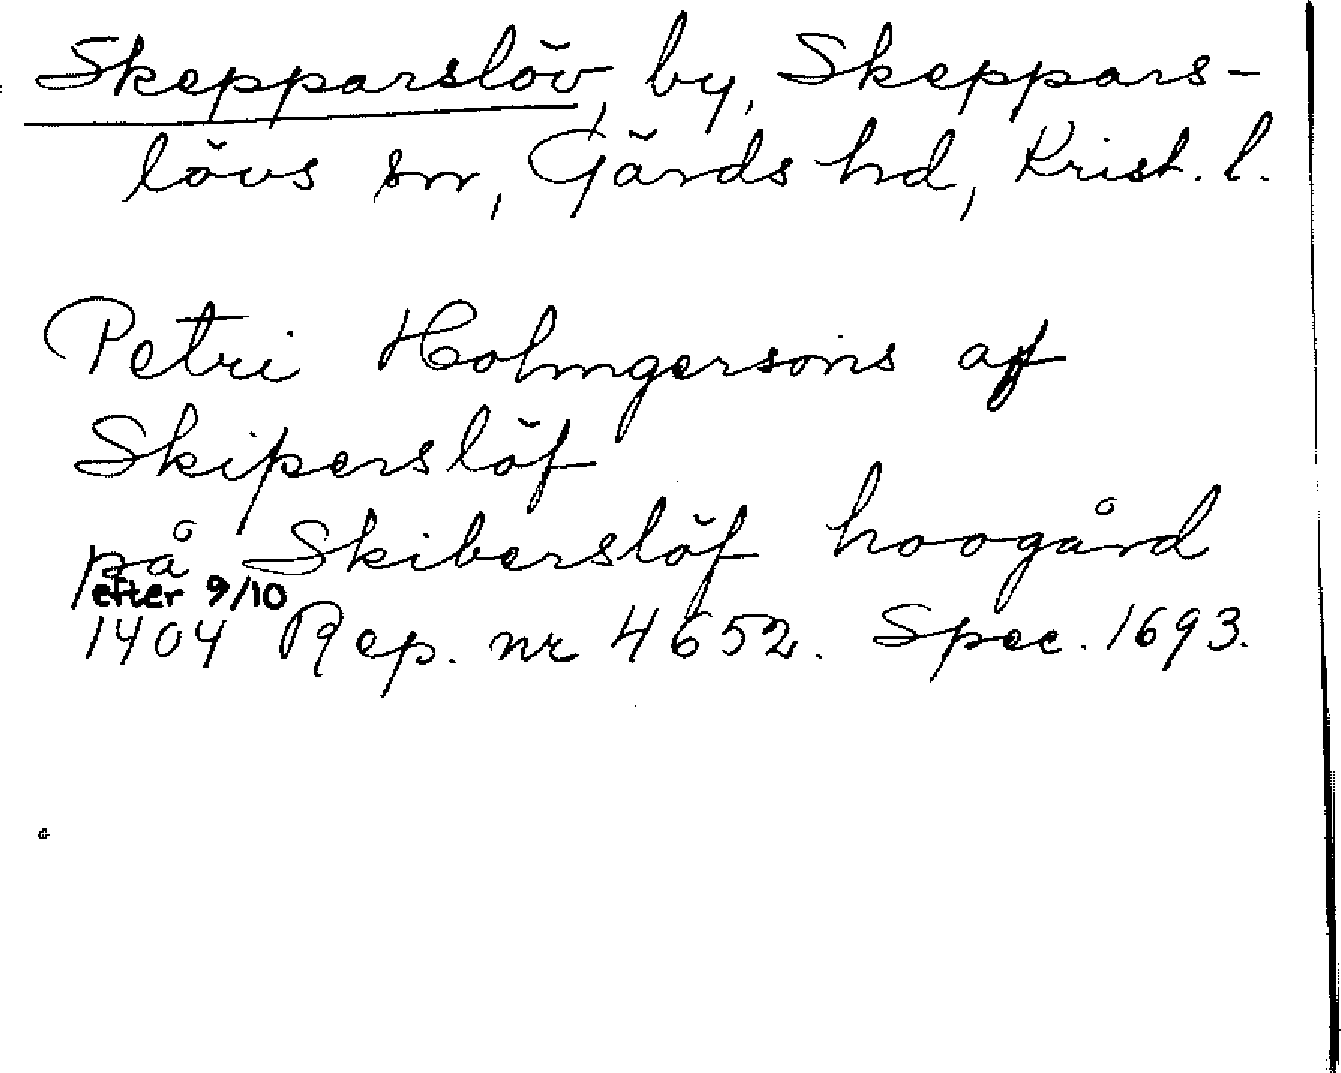 Skepparslöv, by, Skeppars-
lövs sn, Gärds hd, Krist. l.
Petri Holmgersøns aff
Skiperslöf
på Skiberslöf hoogård
efter 9/10
1404 Rep. nr 4652. Spec. 1693.